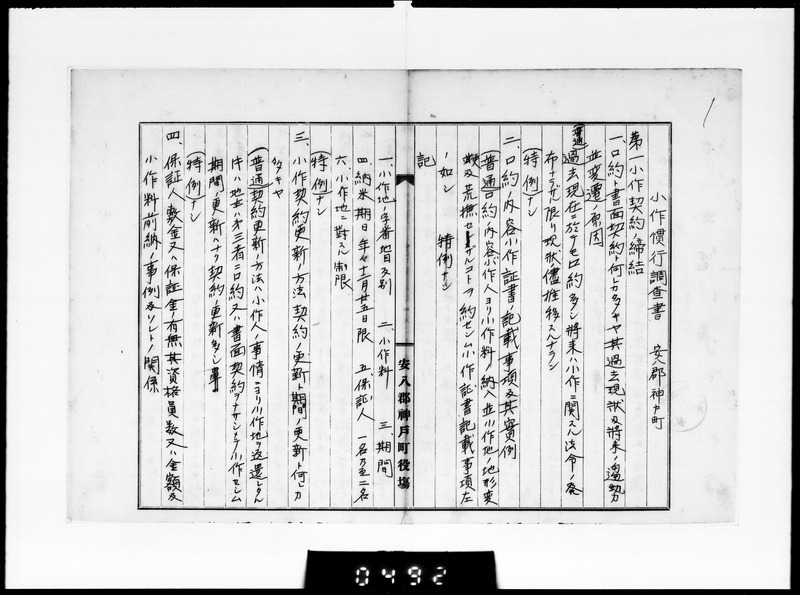 小作慣行調査書　安八郡神戸町
第一小作契約ノ締結
一、口約ト書面契約ト何レカ多キヤ其過去現状及将来ノ趨勢
並変遷ノ原因
(普通)過去現在ニ於テモ口約多シ将来ハ小作ニ関スル法令ノ発
布ナラザル限リ現状ノ儘推移スルナラン
(特例)ナシ
二、口約ノ内容小作証書ノ記載事項及其実例
(普通)口約ノ内容小作人ヨリ小作料ノ納入並小作地ノ地形変
更及荒撫セシメザルコトヲ約セシム小作証書記載事項左
ノ如シ　特例ナシ
記
一、小作地ノ字番地目反別　二、小作料　三、期間
四、納米期日年々十二月廿五日限　五、保証人　一名乃至二名
六、小作地ニ対スル制限
(特例)ナシ
三、小作契約更新ノ方法契約ノ更新ト期間ノ更新ト何レカ
多キヤ
(普通)契約更新ノ方法ハ小作人ノ事情ニヨリ小作地ヲ返還シタル
トキハ地主ハ第三者ニ口約又ハ書面契約ヲナサシメテ小作セシム
期間ノ更新ハナク契約ノ更新多シ
(特例)ナシ
四、保証人敷金又ハ保証金ノ有無其資格員数又ハ金額及
小作料前納ノ事例及ソレトノ関係
安八郡神戸町役場
0492